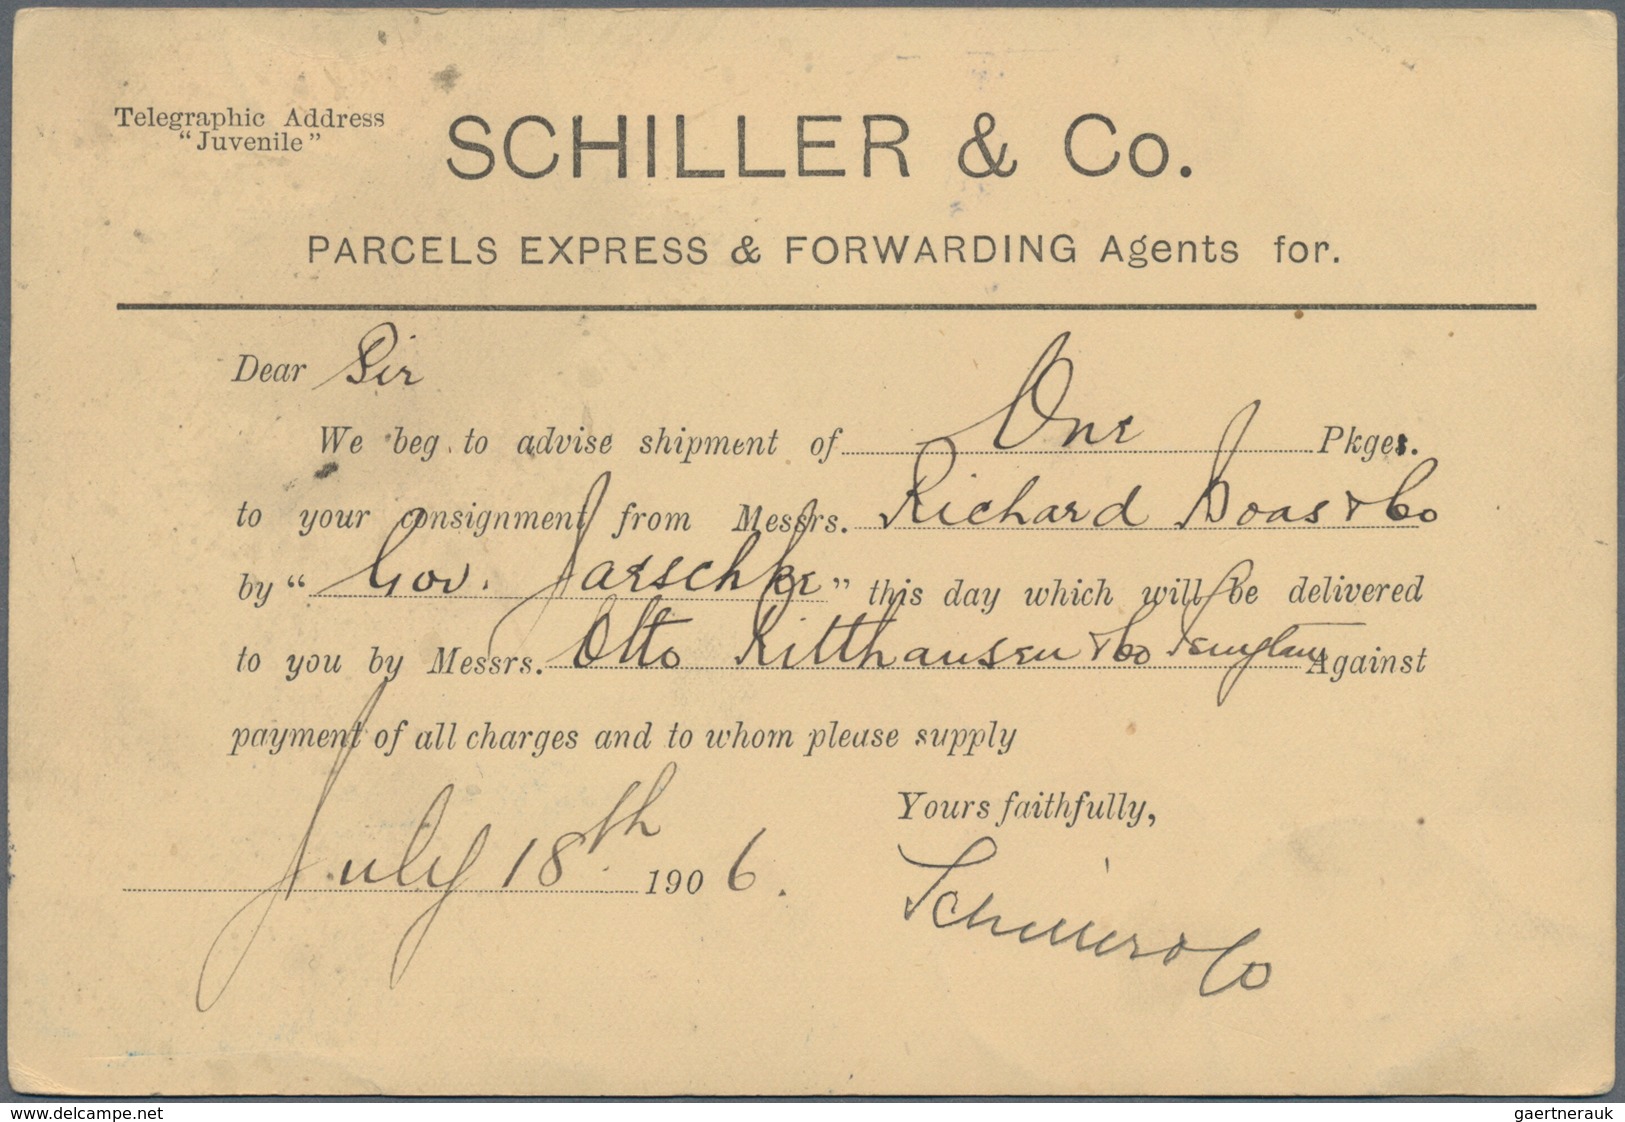 Telegraphic Address
"Juvenile"
SCHILLER & Co.
PARCELS EXPRESS & FORWARDING Agents for.
Dear Sir
We beg to advise shipment of One Pkges.
to your consignment from Messrs. Richard Boas & Co
by "Gov. Jaeschke" this day which will be delivered
to you by Messrs. Otto Ritthausen & Co Tsingtau Against
payment of all charges and to whom please supply
Yours faithfully,
July 18th 1906.
Schiller & Co
www.delcampe.net
gaertnerauk